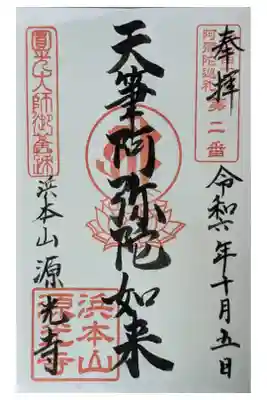 奉拝
阿弥陀巡礼
第二番
令和六年十月五日
天筆阿弥陀如来
圓光大師御舊跡
浜本山 源光寺
浜本山
源光寺